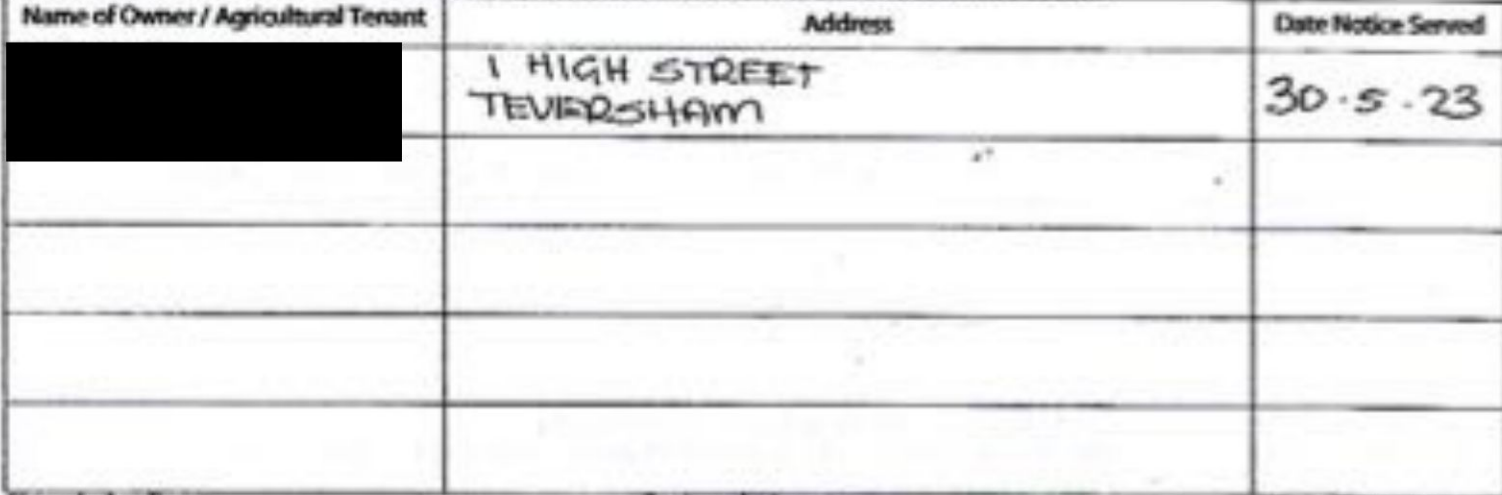 Name of Owner / Agricultural Tenant
Address
Date Notice Served
1 HIGH STREET
TEVERSHAM
30.5.23